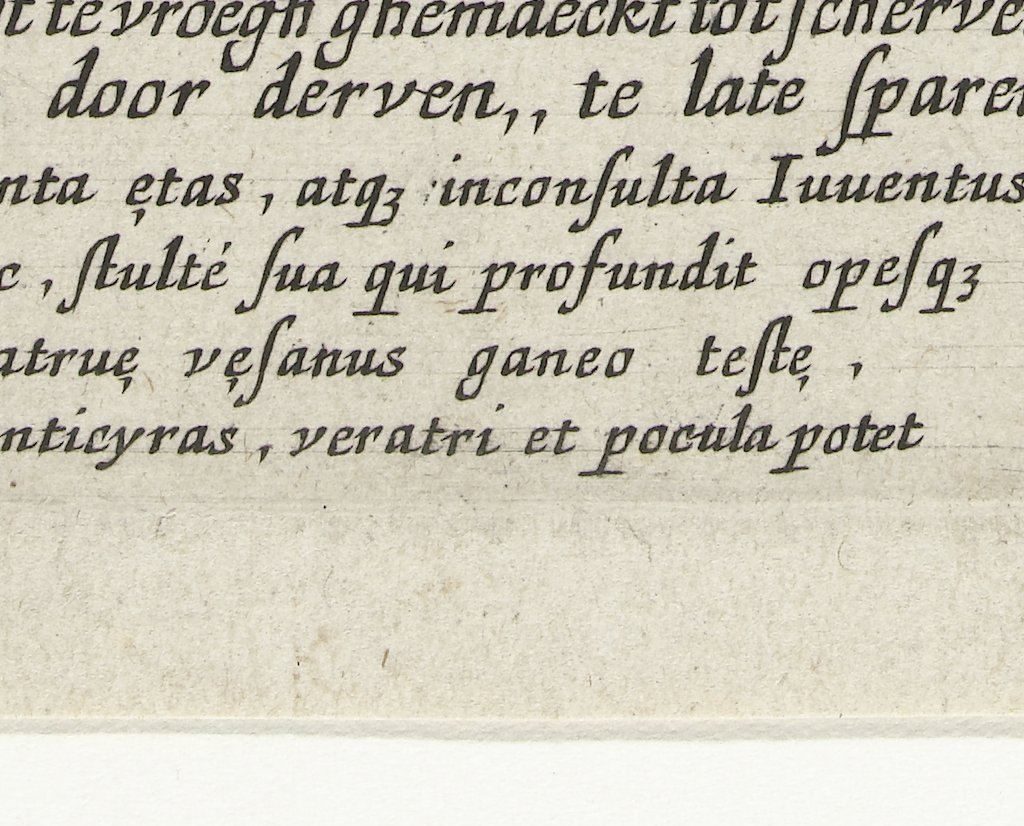 te vroegh ghemaeckt tot ſcherve
door derven,, te late ſparen
nta ętas, atqꝫ inconſulta Iuuentus
c, ſtulté ſua qui profundit opeſqꝫ
atruę vęſanus ganeo teſtę,
nticyras, veratri et pocula potet